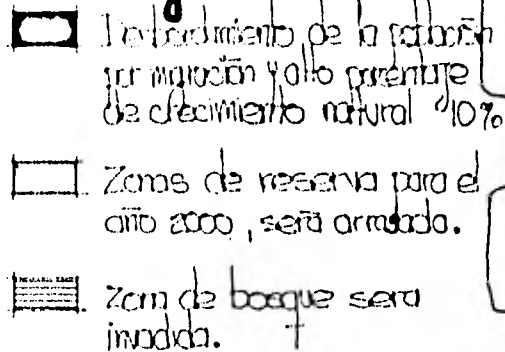 de la población
por migración y alto porcentaje
de crecimiento natural 10%
Zonas de reserva para el
año 2000, será
Zona de bosque sera
invadida.